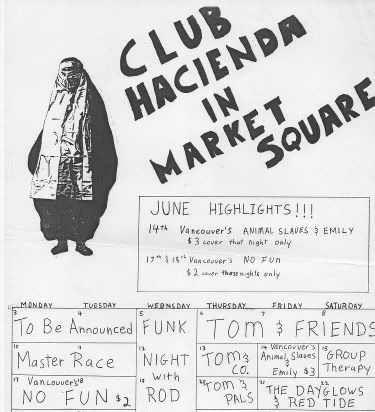 CLUB
HACIENDA
IN
MARKET
SQUARE
JUNE HIGHLIGHTS!!!
14th Vancouver's ANIMAL SLAVES & EMILY
$3 cover that night only
17th & 18th Vancouver's NO FUN
$2 cover those nights only
MONDAY TUESDAY WEDNESDAY THURSDAY FRIDAY SATURDAY
3 4 5 6 7 8
To Be Announced FUNK TOM & FRIENDS
10 11 12 13 14 15
Master Race NIGHT TOM & CO. Vancouver's Animal Slaves & Emily $3 GROUP Therapy
17 18 19 20 21 22
Vancouver's NO FUN $2 with ROD TOM & PALS THE DAYGLOWS & RED TIDE